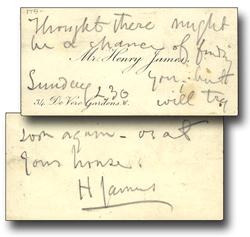 Thought there might
be a chance of finding
Mr. Henry James.
you, but
Sunday 2.30
will try
34, De Vere Gardens. W.
soon again - or at
your house.
H James